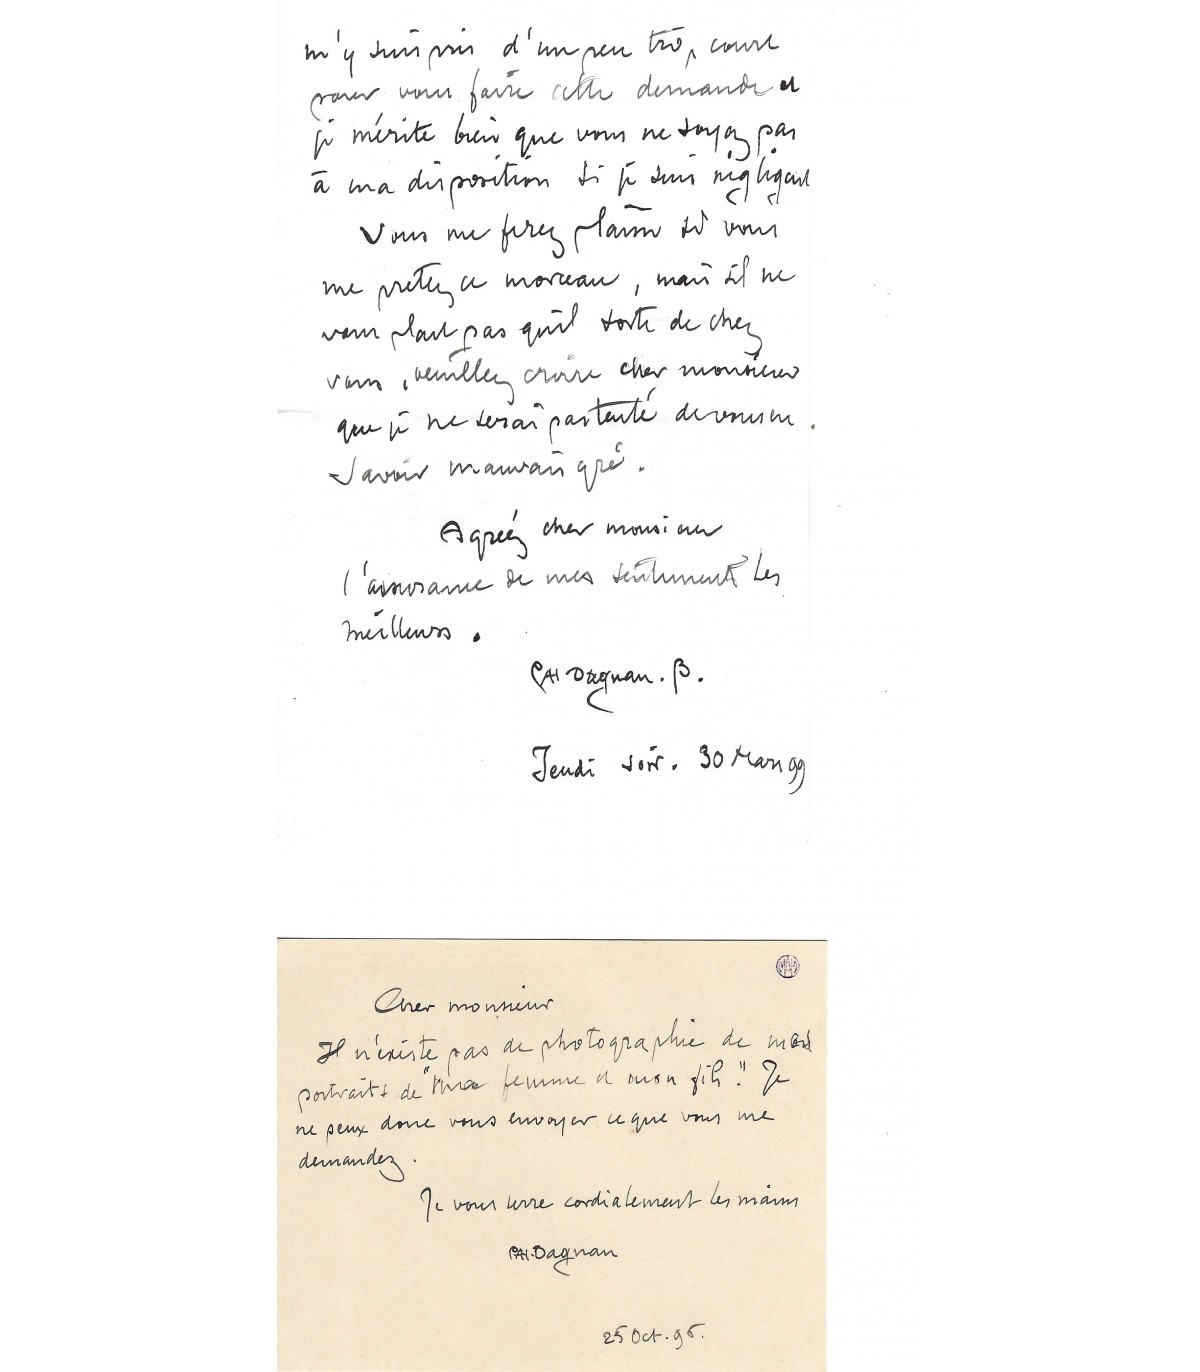 m'y suis pris d'un peu trop court
pour vous faire cette demande et
je mérite bien que vous ne soyez pas
à ma disposition si je suis négligent
Vous me ferez plaisir si vous
me prêtez ce morceau, mais s'il ne
vous plait pas qu'il sorte de chez
vous, veuillez croire cher monsieur
que je ne serai pas tenté de vous en
savoir mauvais gré.
Agréez cher monsieur
l'assurance de mes sentiments les
meilleurs.
PAJ Dagnan. B.
Jeudi soir. 30 Mars 99
Cher monsieur
Il n'existe pas de photographie de mes
portraits de "Ma femme et mon fils". Je
ne peux donc vous envoyer ce que vous me
demandez.
Je vous serre cordialement les mains
PAJ. Dagnan
25 Oct. 96.